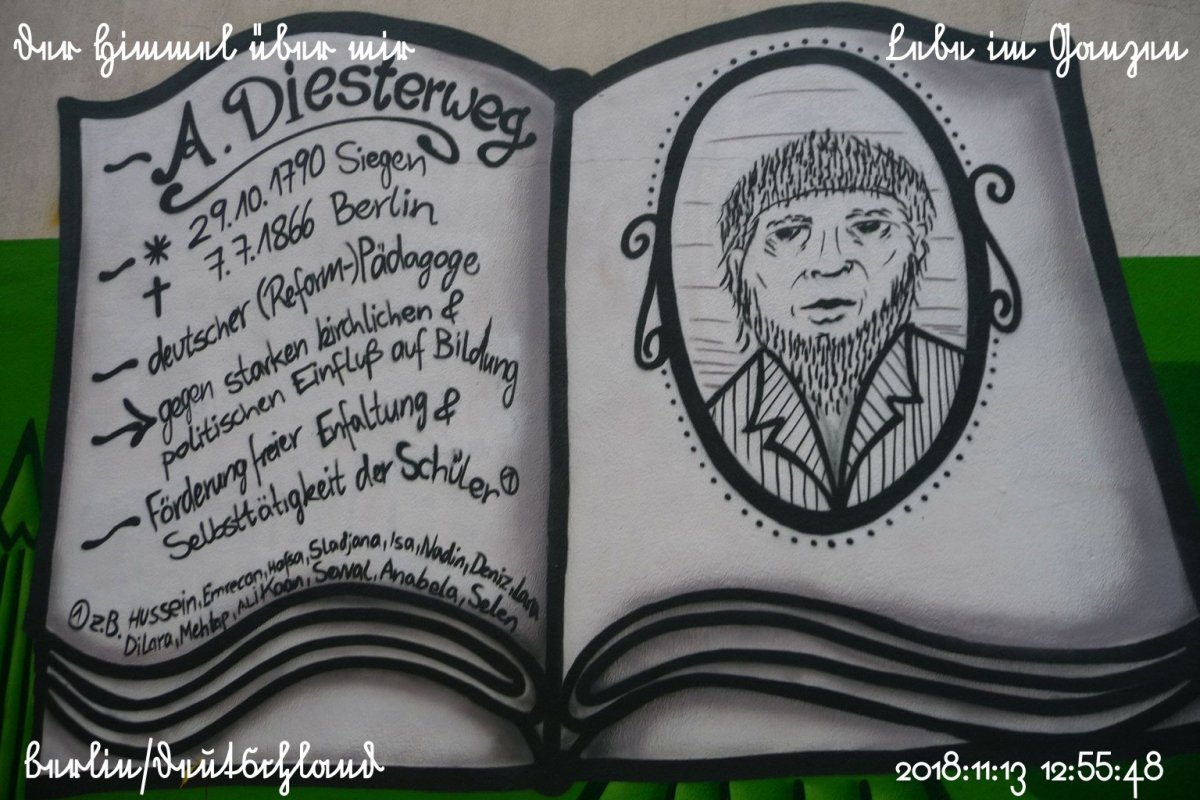 Der Himmel über mir
Lebe im Ganzen
A. Diesterweg
* 29.10.1790 Siegen
† 7.7.1866 Berlin
deutscher (Reform-)Pädagoge
gegen starken kirchlichen &
politischen Einfluß auf Bildung
Förderung freier Enfaltung &
Selbsttätigkeit der Schüler①
① z.B. Hussein, Emrecan, Hafsa, Sladjana, Isa, Nadin, Deniz, Lara
Dilara, Mehtap, Ali Kaan, Seval, Anabela, Selen
Berlin/Deutschland
2018:11:13 12:55:48